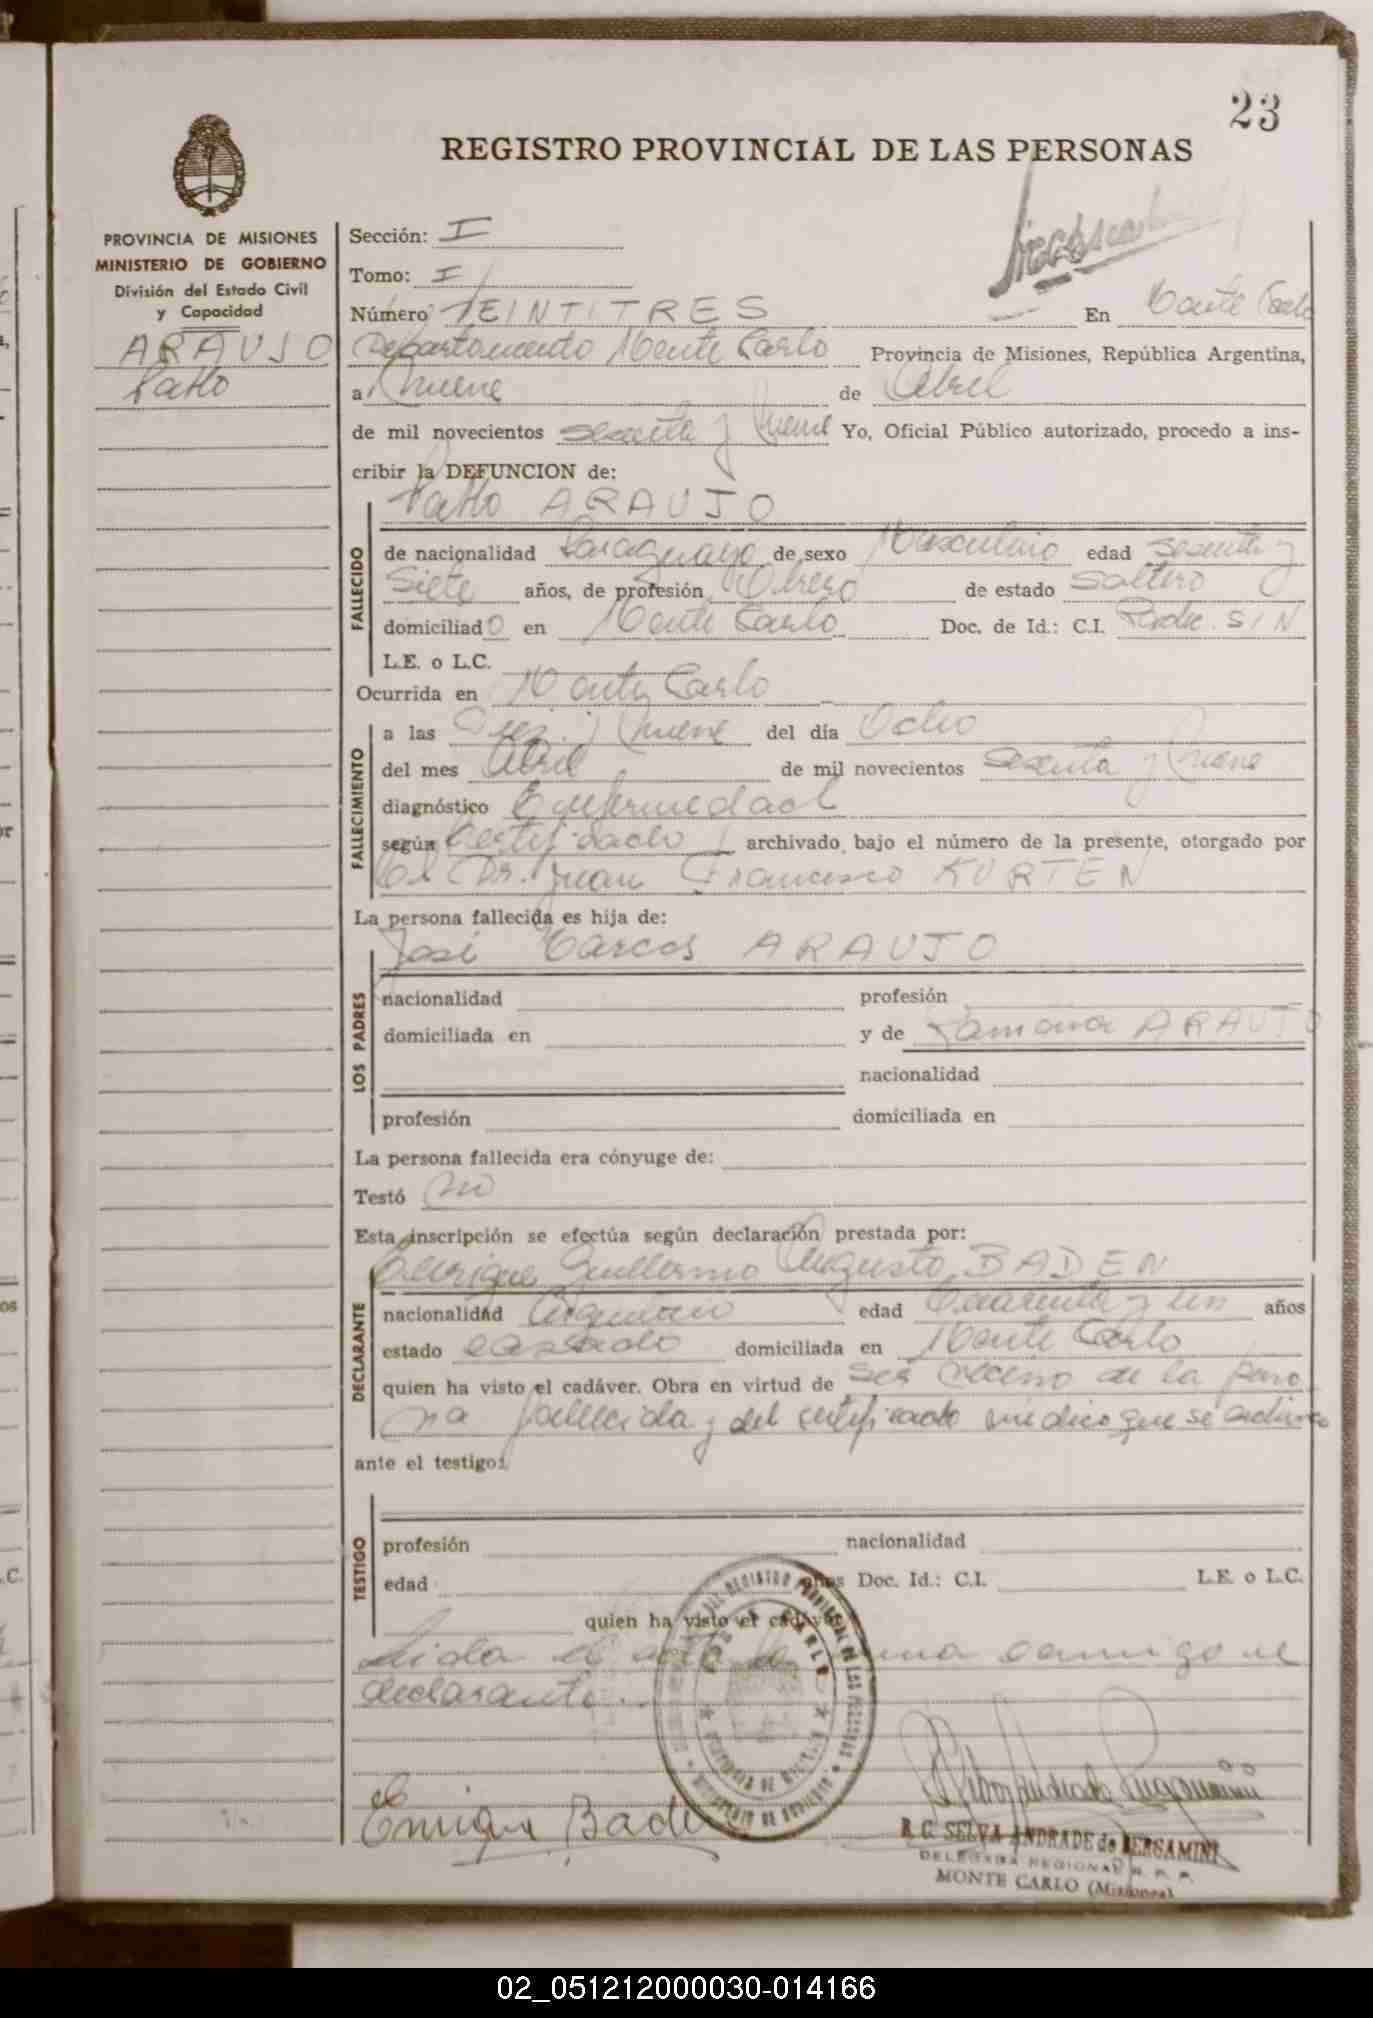 23
REGISTRO PROVINCIAL DE LAS PERSONAS
PROVINCIA DE MISIONES
MINISTERIO DE GOBIERNO
División del Estado Civil
y Capacidad
ARAUJO
Pablo
Sección: I
Tomo: I
Número VEINTITRES En Monte Carlo
Departamento Monte Carlo Provincia de Misiones, República Argentina,
a Nueve de Abril
de mil novecientos sesenta y Nueve Yo, Oficial Público autorizado, procedo a ins-
cribir la DEFUNCION de:
Pablo ARAUJO
FALLECIDO
de nacionalidad Paraguaya de sexo Masculino edad sesenta y
Siete años, de profesión Obrero de estado soltero
domiciliado en Monte Carlo Doc. de Id.: C.I. S/N
L.E. o L.C.
Ocurrida en Monte Carlo
FALLECIMIENTO
a las Diez y Nueve del día Ocho
del mes Abril de mil novecientos sesenta y Nueve
diagnóstico Enfermedad
según Certificado archivado bajo el número de la presente, otorgado por
el Dr. Juan Francisco KURTEN
La persona fallecida es hija de:
José Marcos ARAUJO
LOS PADRES
nacionalidad profesión
domiciliada en y de Ramona ARAUJO
nacionalidad
profesión domiciliada en
La persona fallecida era cónyuge de:
Testó no
Esta inscripción se efectúa según declaración prestada por:
Enrique Guillermo Augusto BADEN
DECLARANTE
nacionalidad Argentino edad Cuarenta y un años
estado casado domiciliada en Monte Carlo
quien ha visto el cadáver. Obra en virtud de ser vecino de la perso
na fallecida y del certificado médico que se archiva
ante el testigo:
TESTIGO
profesión nacionalidad
edad años Doc. Id.: C.I. L.E. o L.C.
quien ha visto el cadáver
Leida el acta la firma conmigo el
declarante.
Enrique Baden
R. G. SELVA ANDRADE de BERGAMINI
DELEGADA REGIONAL R. P. P.
MONTE CARLO (Misiones)
02_051212000030-014166